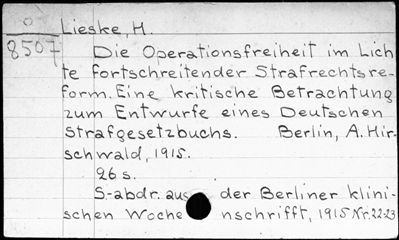 O
8507
Lieske, H.
Die Operationsfreiheit im Lich
te fortschreitender Strafrechtsre-
form. Eine kritische Betrachtung
zum Entwurfe eines Deutschen
Strafgesetzbuchs. Berlin, A. Hir-
schwald, 1915.
26 s.
S-abdr. aus der Berliner klini-
schen Woche nschrifft, 1915 Nr. 22-23